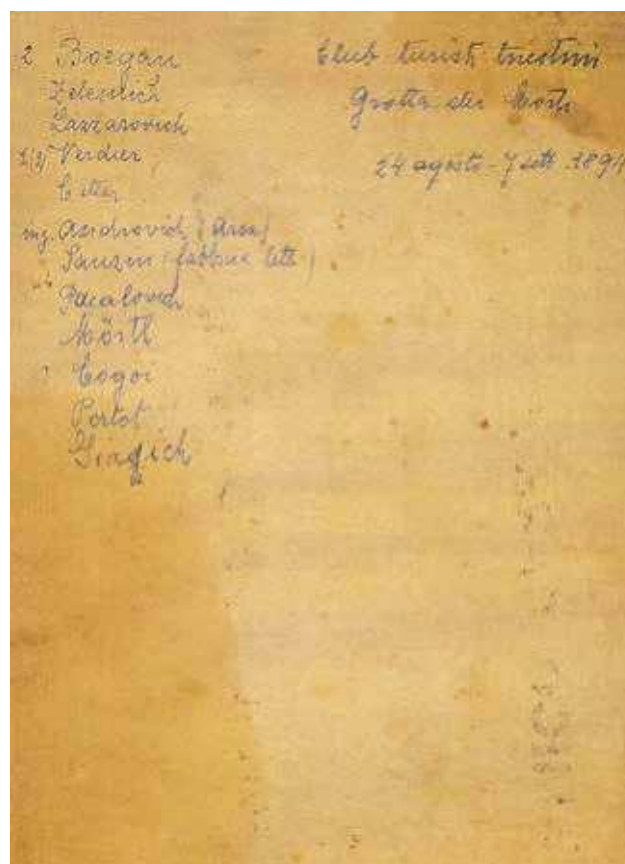 2 Boegan
Zelesnich
Lazzarovich
1(2) Verdier
Citter
ing. Androvich (Arsa)
Sanzin (fabbrica latte)
Pacalovich
Mörtl
? Cogoi
Pertot
Giagich
Club turisti triestini
Grotta dei Morti
24 agosto - 7 sett. 1894